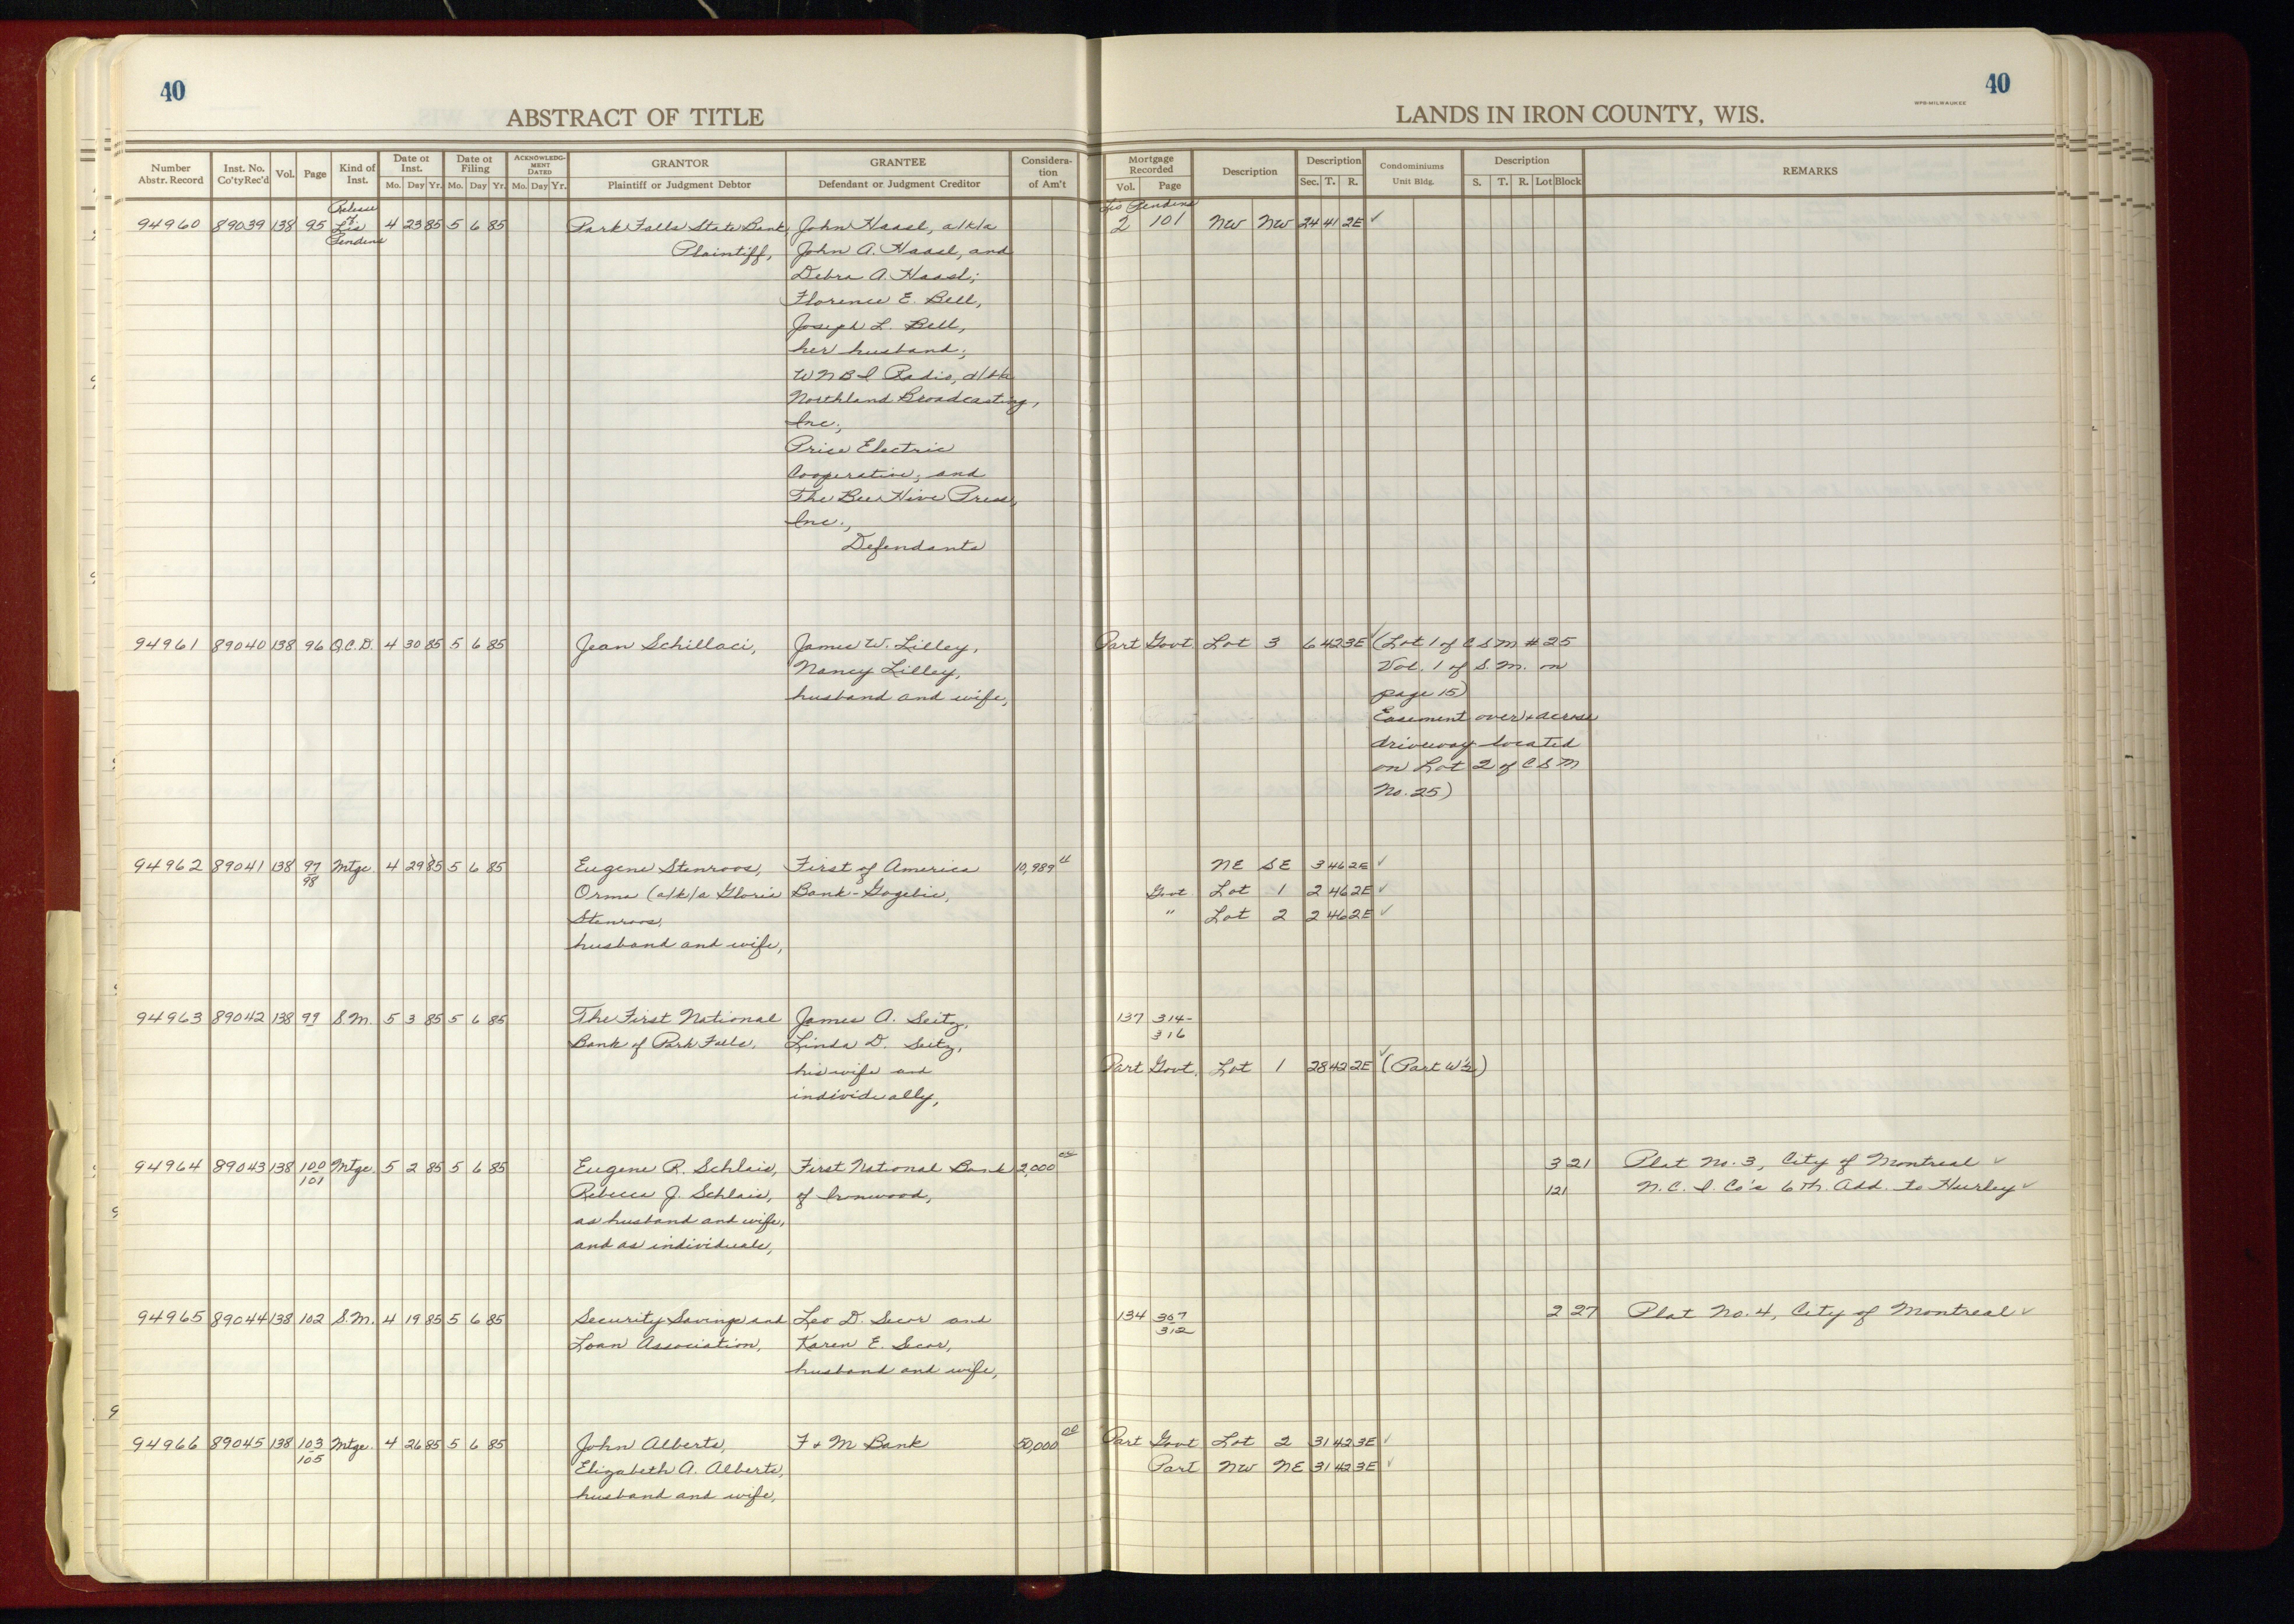 40
40
ABSTRACT OF TITLE
LANDS IN IRON COUNTY, WIS.
WPB-MILWAUKEE
Number Abstr. Record Inst. No. Co'ty Rec'd Vol. Page Kind of Inst. Date of Inst. Mo. Day Yr. Date of Filing Mo. Day Yr. ACKNOWLEDGMENT DATED Mo. Day Yr. GRANTOR Plaintiff or Judgment Debtor GRANTEE Defendant or Judgment Creditor Consideration of Am't
Mortgage Recorded Vol. Page Description Description Sec. T. R. Condominiums Unit Bldg. Description S. T. R. Lot Block REMARKS
Release of Lis Pendens
Lis Pendens
94960 89039 138 95 4 23 85 5 6 85 Park Falls State Bank, John Haasl, a/k/a 2 101 NW NW 24 41 2E ✓
Plaintiff, John A. Haasl, and
Debra A. Haasl;
Florence E. Bell,
Joseph L. Bell,
her husband;
WNBI Radio, d/b/a
Northland Broadcasting,
Inc.;
Price Electric
Cooperative; and
The Bee Hive Press,
Inc.,
Defendants
94961 89040 138 96 Q.C.D. 4 30 85 5 6 85 Jean Schillaci, James W. Lilley, Part Govt. Lot 3 6 42 3E ✓ (Lot 1 of CSM #25
Nancy Lilley, Vol. 1 of S.M. on
husband and wife, page 15)
Easement over & across
driveway located
on Lot 2 of CSM
No. 25)
94962 89041 138 97 98 Mtge. 4 29 85 5 6 85 Eugene Stenroos, First of America 10,989 NE SE 3 46 2E ✓
Orma (a/k/a Gloria Bank-Gogebic, Govt Lot 1 2 46 2E ✓
Stenroos, " Lot 2 2 46 2E ✓
husband and wife,
94963 89042 138 99 S.M. 5 3 85 5 6 85 The First National James A. Seitz, 137 314-316
Bank of Park Falls, Linda D. Seitz,
his wife and Part Govt. Lot 1 28 42 2E ✓ (Part W½)
individually,
94964 89043 138 100 101 Mtge. 5 2 85 5 6 85 Eugene R. Schlais, First National Bank 2,000 00 3 21 Plat No. 3, City of Montreal ✓
Rebecca J. Schlais, of Ironwood, 121 N.C.I. Co's 6th. Add. to Hurley ✓
as husband and wife,
and as individuals,
94965 89044 138 102 S.M. 4 19 85 5 6 85 Security Savings and Leo D. Secor and 134 307 312 2 27 Plat No. 4, City of Montreal ✓
Loan Association, Karen E. Secor,
husband and wife,
94966 89045 138 103 105 Mtge. 4 26 85 5 6 85 John Alberts, F & M Bank 50,000 00 Part Govt Lot 2 31 42 3E ✓
Elizabeth A. Alberts, Part NW NE 31 42 3E ✓
husband and wife,